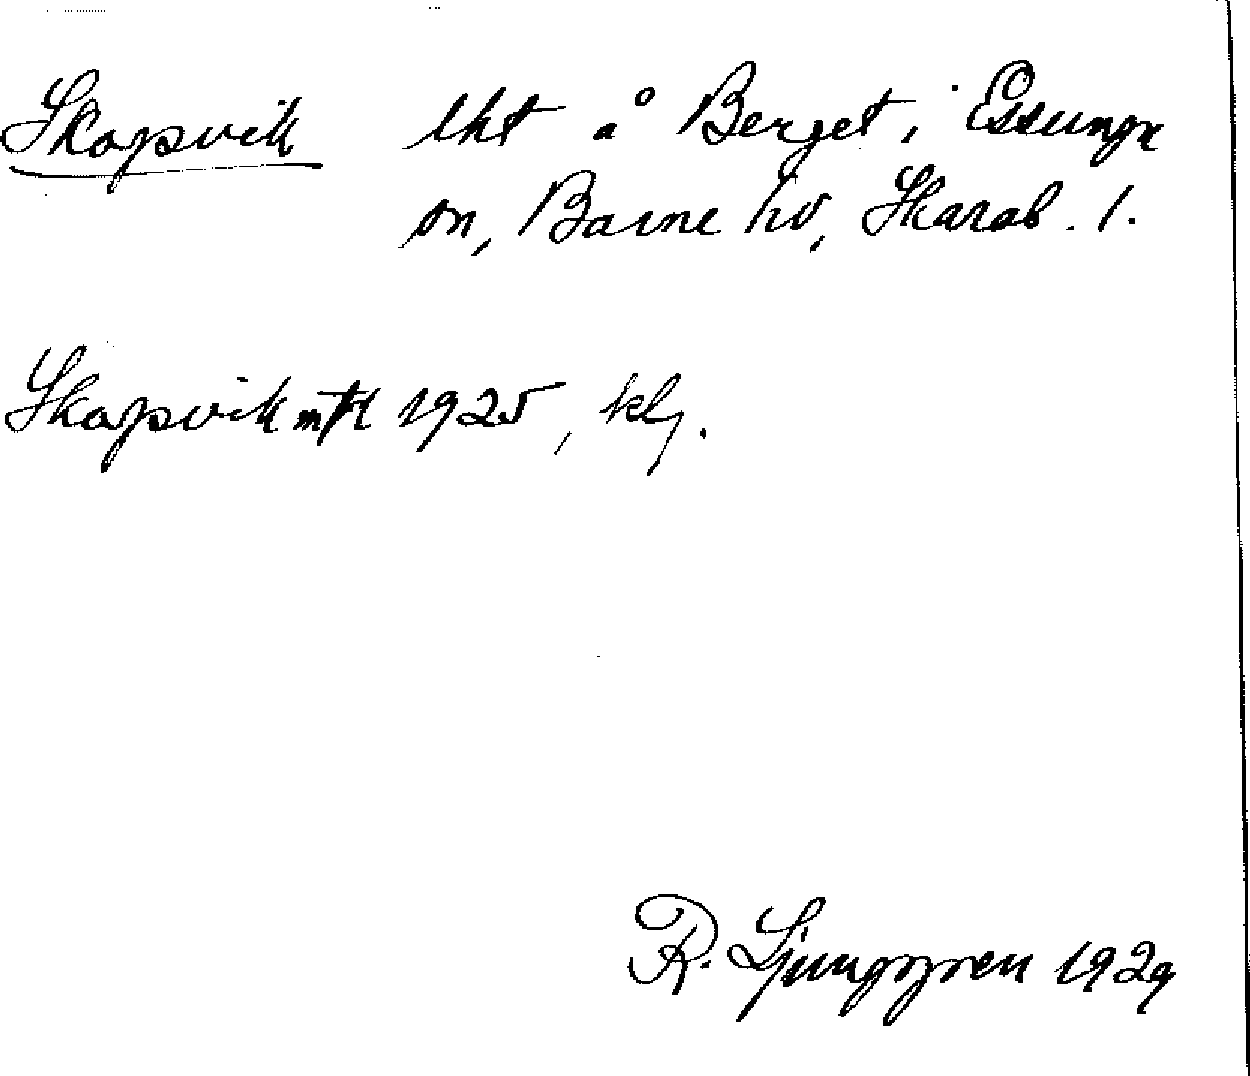 Skapvik lht å Berget i Essunga
sn, Barne hd, Skarab. l.
Skapvik mtl 1925, klj.
R. Ljunggren 1929